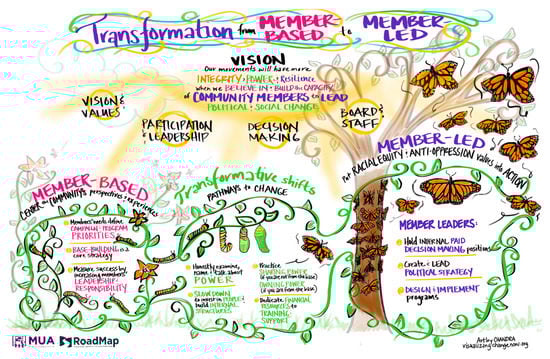 Transformation from MEMBER BASED to MEMBER LED
VISION
Our movements will have more
INTEGRITY · POWER · & Resilience
when we BELIEVE IN & BUILD the CAPACITY
of COMMUNITY MEMBERS to LEAD
POLITICAL & SOCIAL CHANGE
VISION &
VALUES
PARTICIPATION
& LEADERSHIP
DECISION
MAKING
BOARD &
STAFF
MEMBER-BASED
CENTER the COMMUNITY'S perspectives & experiences
Members' needs define
CAMPAIGN & PROGRAM
PRIORITIES
BASE-BUILDING is a
core strategy
Measure success by
increasing members'
LEADERSHIP &
RESPONSIBILITY
Transformative shifts
PATHWAYS to CHANGE
Honestly examine,
name & talk about
POWER
SLOW DOWN
to invest in PEOPLE &
build INTERNAL
STRUCTURES
Practice
SHARING POWER
(if you are not from the base)
OWNING POWER
(if you are from the base)
Dedicate FINANCIAL
RESOURCES to
TRAINING &
SUPPORT
MEMBER-LED
Put RACIAL EQUITY & ANTI-OPPRESSION Values into ACTION
MEMBER LEADERS:
Hold INTERNAL PAID
DECISION MAKING positions
Create & LEAD
POLITICAL STRATEGY
DESIGN & IMPLEMENT
programs
MUA
RoadMap
Art by CHANDRA
visualizingchange.now.org